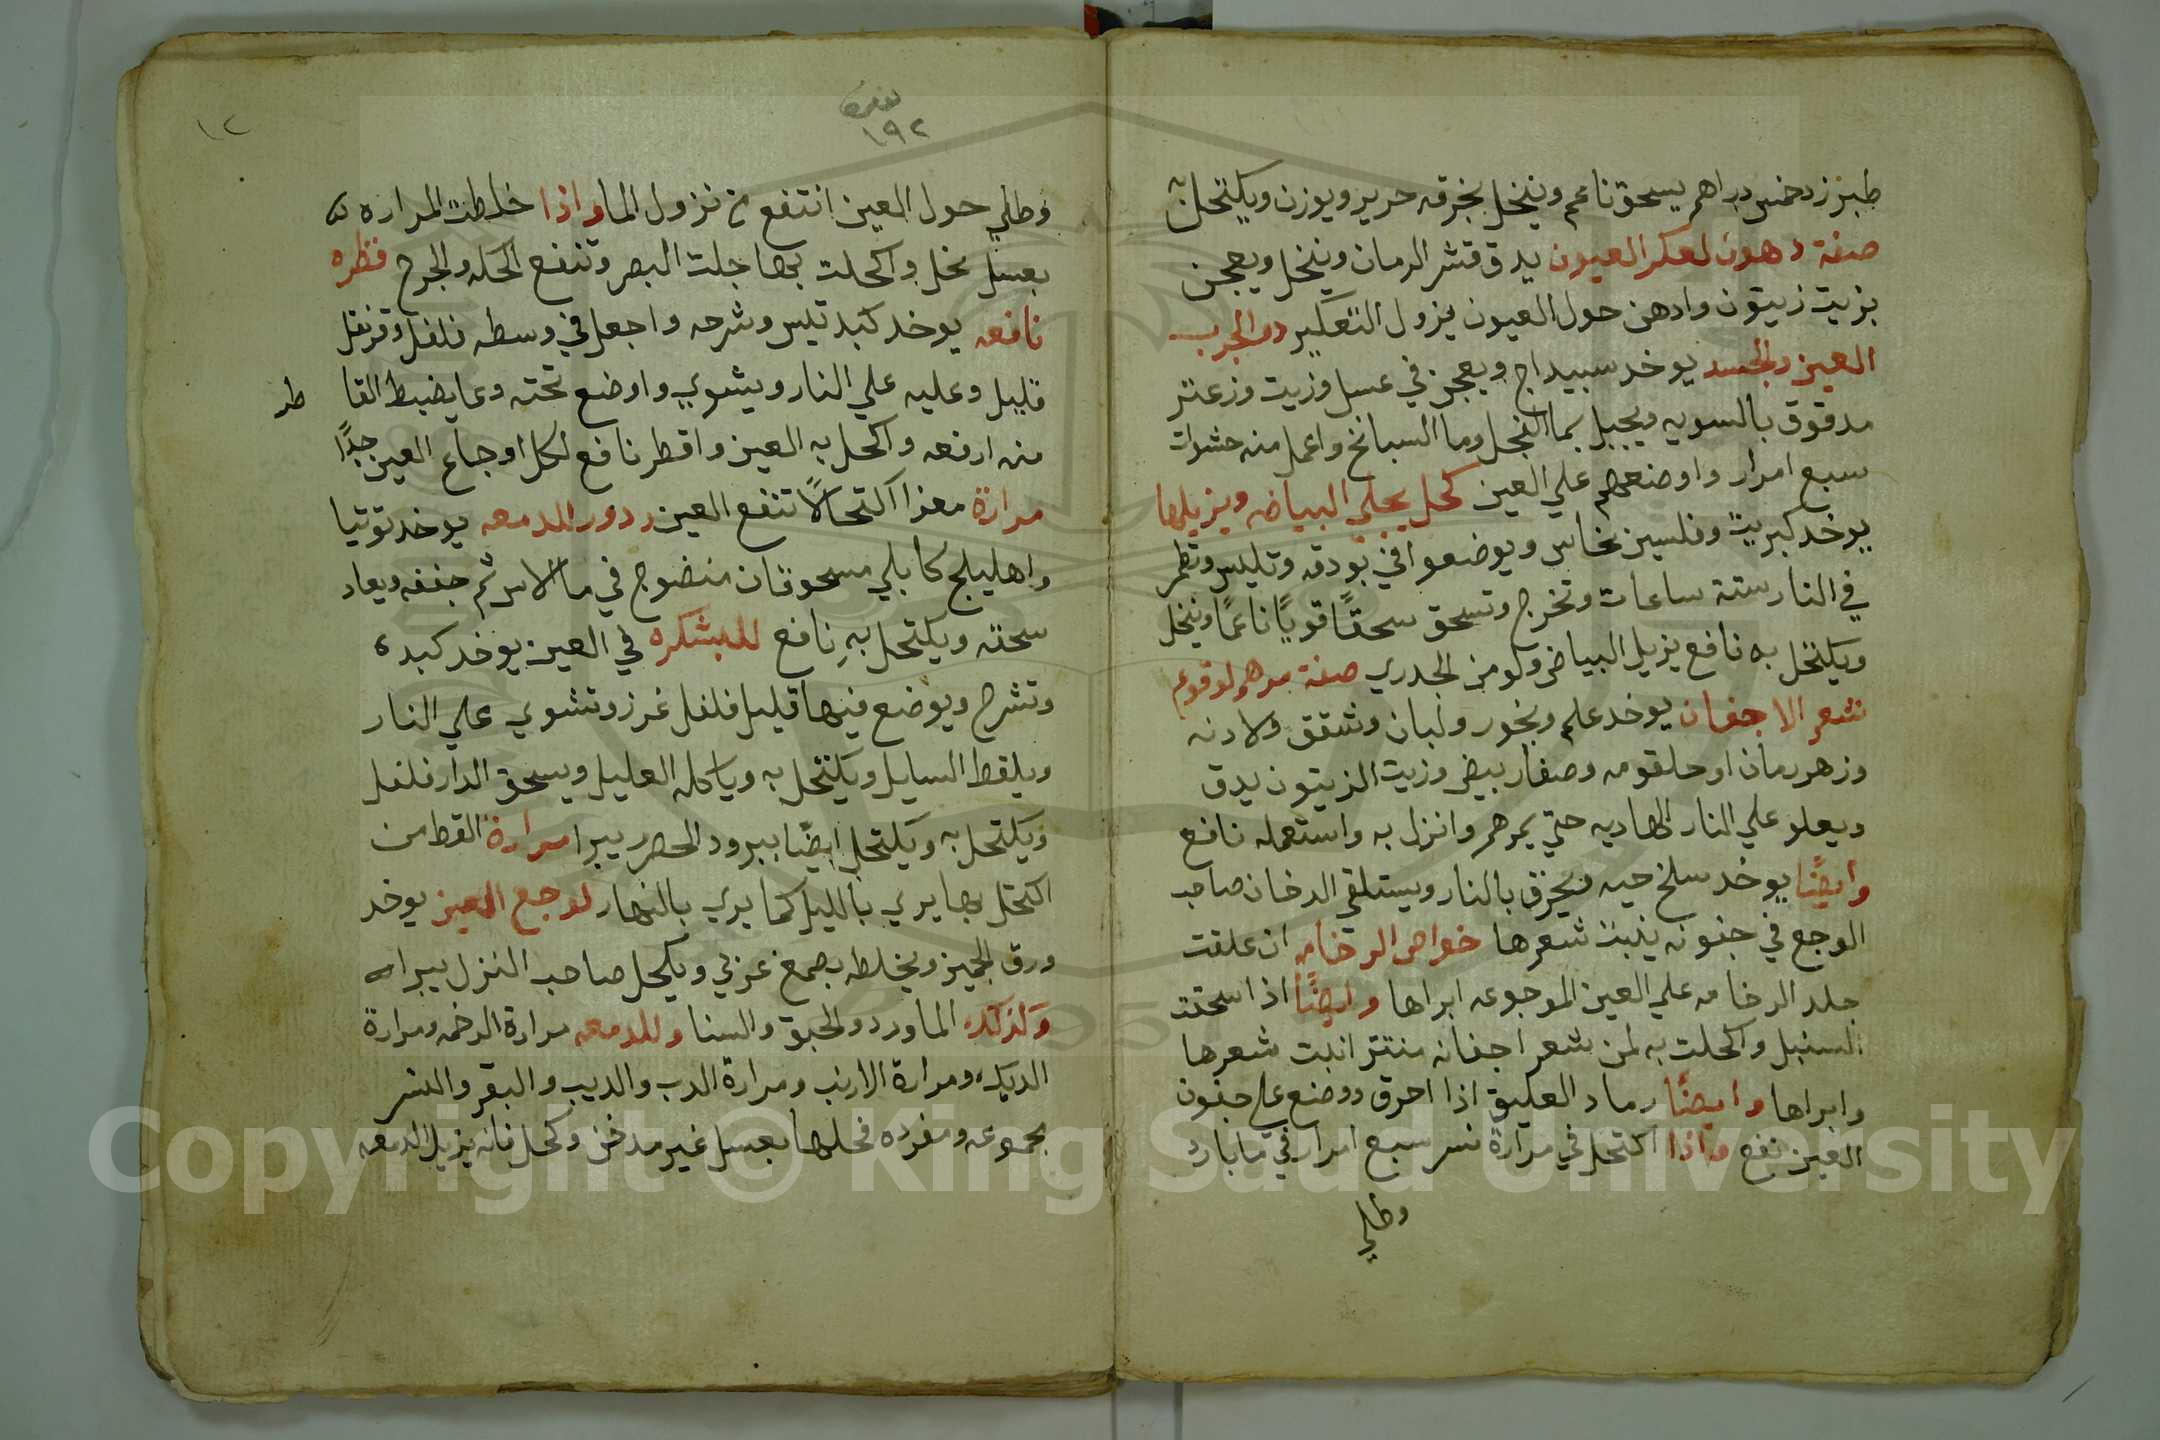 طبرزد خمس دراهم يسحق ناعم وينخل بخرقه حرير ويوزن ويكتحل به
صفة دهون لعكر العيون يدق قشر الرمان وينخل ويعجن
بزيت زيتون وادهن حول العيون يزول التعكير دوا لجرب
العين والجسد يوخد سبيداج ويعجن في عسل وزيت وزعتر
مدقوق بالسويه ويجبل بما الفجل وما السبانخ واعمل منه حشوات
سبع امرار واوضعهم علي العين كحل يجلي البياض ويزيلها
يوخد كبريت وفلسين نحاس ويوضعوا في بودقه وتليس وتطمر
في النار ستة ساعات وتخرج وتسحق سحقًا قويًا ناعمًا وينخل
ويكتحل به نافع يزيل البياض ولو من الجدري صفة مرهم لوقوع
شعر الاجفان يوخد علم وبخور ولبان وشقق ولادنه
وزهر رمان او حلقومه وصفار بيض وزيت الزيتون يدق
ويعلو علي النار الهاديه حتي يمرهم وانزل به واستعمله نافع
وايضًا يوخد سلخ حيه ويحرق بالنار ويستلقي الدخان صاحب
الوجع في جفونه ينبت شعرها خواص الرخامه ان علقت
جلد الرخامه علي العين الموجوعه ابراها وايضًا اذا سحقت
السنبل واكحلت به لمن شعر اجفانه منتتر انبت شعرها
وابراها وايضًا رماد العليق اذا احرق ووضع علي جفون
العين نفع واذا اكتحل في مرارة نسر سبع امرار في ما بارد
وطلي
نمره
١٩٢
١٢
وطلي حول العين انتفع من نزول الما واذا خلطت المراره
بعسل نحل واكحلت بها جلت البصر وتنفع الحكه والجرح قطره
نافعه يوخد كبد تيس وشرحه واجعل في وسطه فلفل وقرنفل
قليل وعليه علي النار ويشوي واوضع تحته وعا يضبط القا طر
منه ارفعه واكحل به العين واقطر نافع لكل اوجاع العين جدًا
مرارة معزا اكتحالًا تنفع العين ردور للدمعه يوخد توتيا
واهليلج كابلي مسحوقان منضوج في ما الاس ثم جففه ويعاد
سحقه ويكتحل به نافع للبشكره في العين يوخد كبده
وتشرح ويوضع فيها قليل فلفل غرز وتشوي علي النار
ويلقط السايل ويكتحل به وياكله العليل ويسحق الدار فلفل
ويكتحل به ويكتحل ايضًا ببرود الحصر يبرا مرارة القط من
اكتحل بها يري بالليل كما يري بالنهار لوجع العين يوخد
ورق الجميز ويخلطه بصمغ عربي ويكحل صاحب النزل يبرا
وكذلك الماورد والحبق والسنا وللدمعه مرارة الرخمه ومرارة
الديك ومرارة الارنب ومرارة الدب والديب والبقر والنسر
بمجموعه ومفرده فحلها بعسل غير مدخن وكحل فانه يزيل الدمعه
Copyright © King Saud University